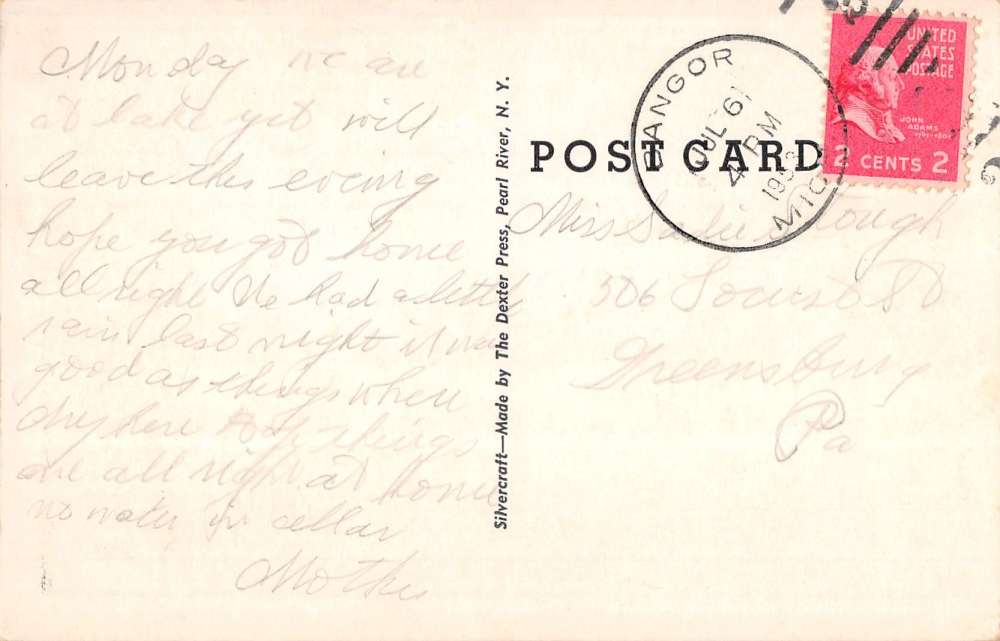 Monday we are
at lake yet will
leave this evening
hope you got home
all right We had a little
rain last night it was
good as things where
dry here things
are all right at home
no water in cellar
Mother
Silvercraft—Made by The Dexter Press, Pearl River, N. Y.
POST CARD
BANGOR
JUL 6
4 PM
MICH
UNITED
STATES
POSTAGE
JOHN
ADAMS
2 CENTS 2
Miss
506 Locust St
Greensburg
Pa